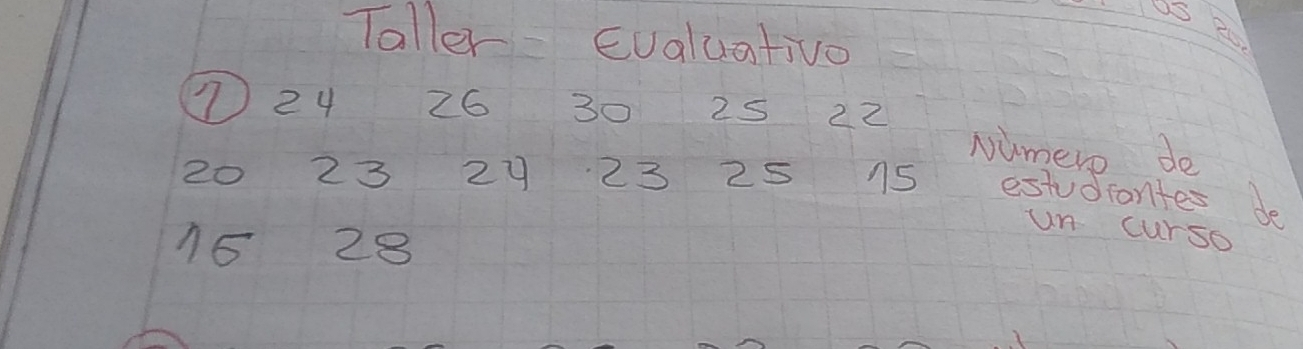 Taller Evaluativo
1 24 26 30 25 22
20 23 24 23 25 15
Número de
estudiantes de
un curso
28